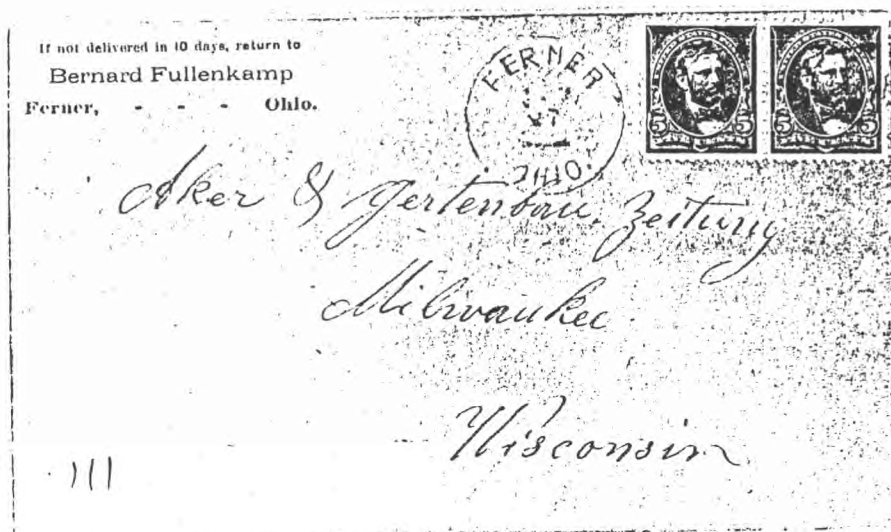 If not delivered in 10 days, return to
Bernard Fullenkamp
Ferner, - - - Ohio.
FERNER
27
OHIO.
UNITED STATES
5 5
5 5
Aker & Gertenbau Zeitung
Milwaukee
Wisconsin